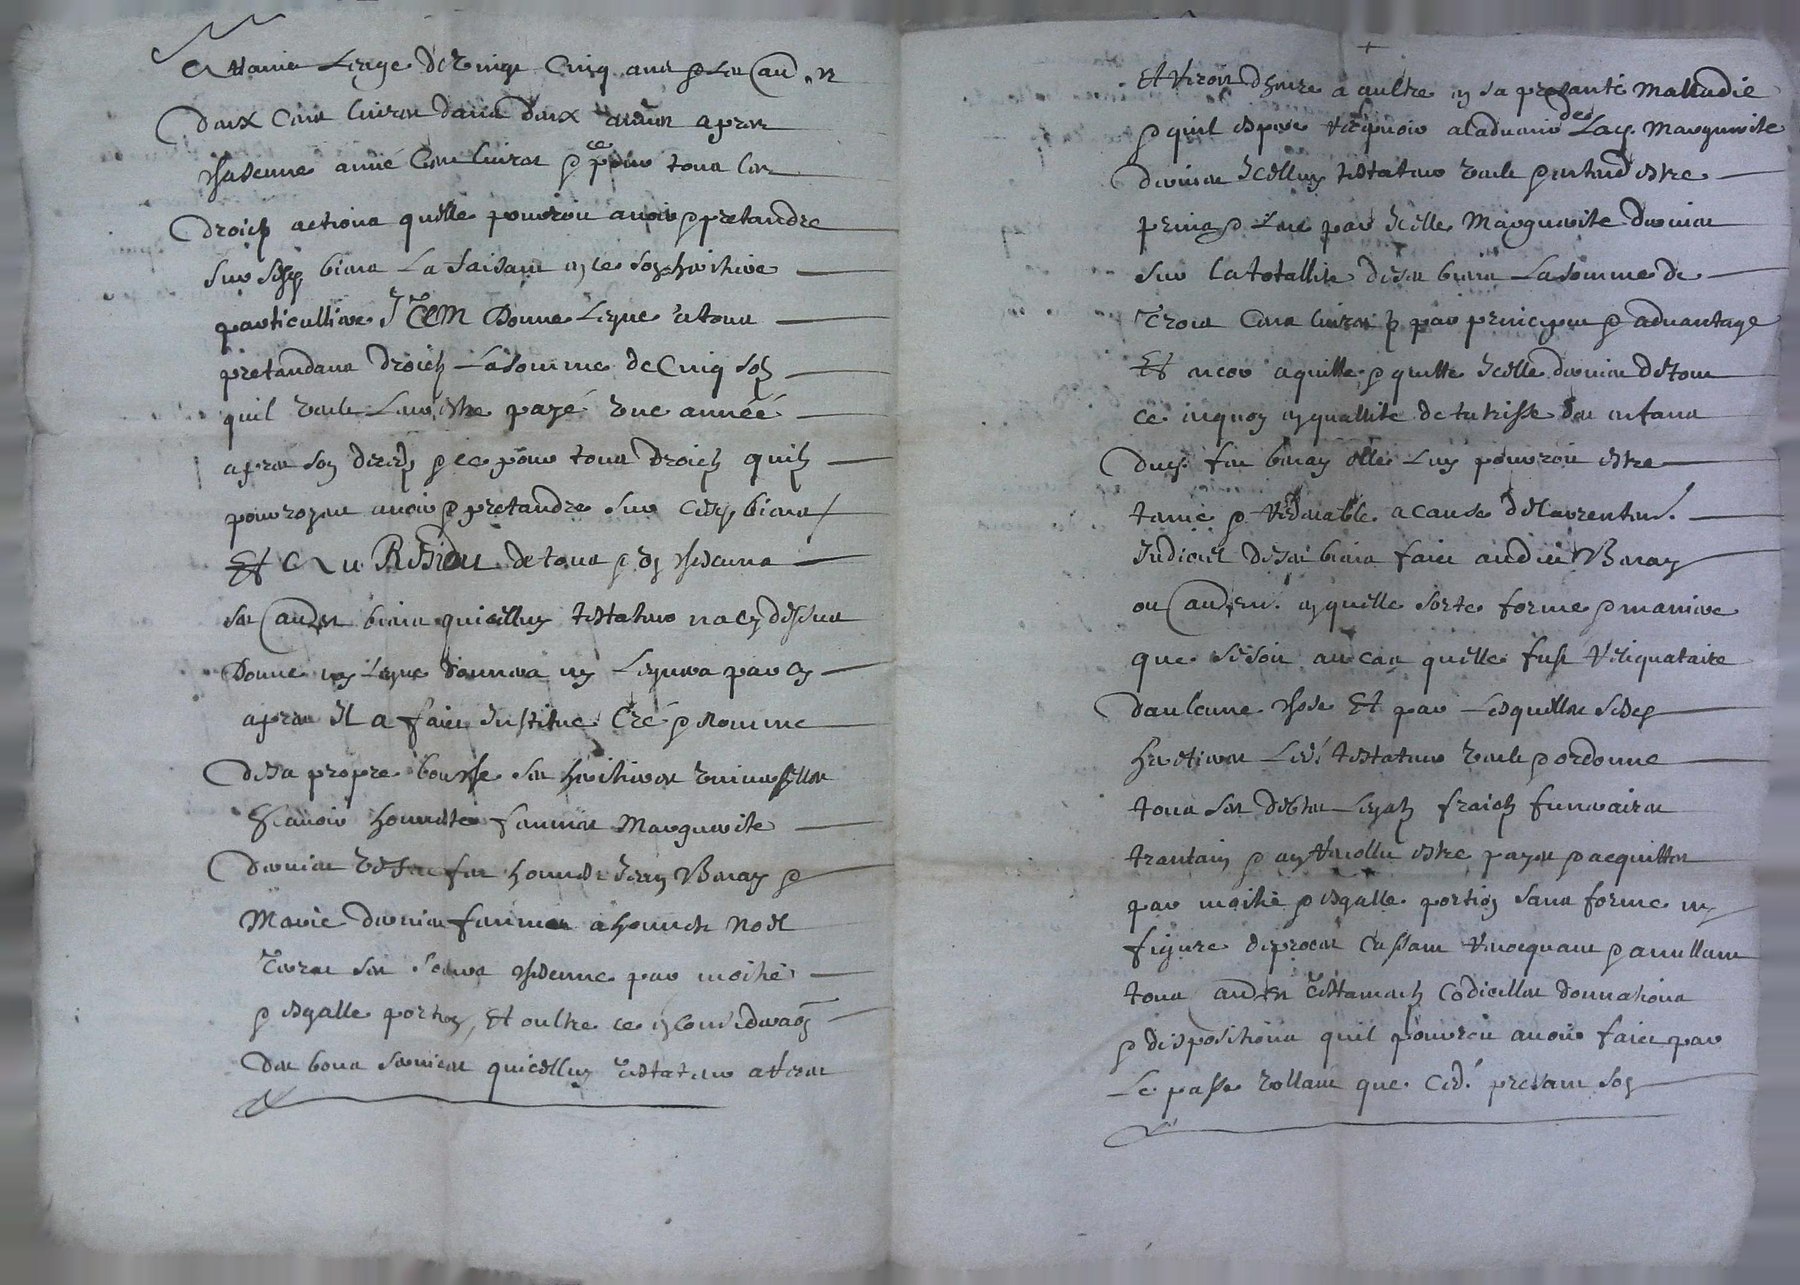 attaine leage de vingt cinq ans & les autres
deux cens livres dans deux années apres
chascune année cens livres & ce pour tous les
droictz actions quelle pourroit avoir & pretandre
sur sesd biens la faisant en ce son heritiere
particulliere ITEM donne legue a tous
pretandans droictz la somme de cinq solz
quil veult leur estre payé une année
apres son deces & ce pour tous droictz quilz
pourroyent avoir & pretandre sur cesd biens
Et Au Residu de tous & ch chascuns
ses autres biens quicelluy testateur na cy dessus
donne ny legue donnera ny leguera par cy
apres Il a faict institue cré & nomme
de sa propre bouche ses heritieres universelles
scavoir honneste femmes Marguerite
vesve feu honneste Jean &
Marie femme a honneste Noel
ses chascune par moitié
& esgalle portion, Et oultre ce en consideration
des bons services quicelluy testateur a receu
Et recoit dheure a aultre en sa presante malladie
& quil espere recepvoir a ladvenir de lad Marguerite
icelluy testateur veult & entend estre
prins & leve par icelle Marguerite
sur la totallite de ses biens la somme de
trois cens livres par precipu & advantage
Et encor aquitte & quitte icelle de tout
ce enquoy en quallite de tutrisse des enfans
dud feu elle luy pourroit estre
tenue & redevable a cause de linventere
judiciel de ses biens faict audict
ou autrem. en quelle sorte forme & maniere
que se soit au cas quelle fust reliquataire
daulcune chose Et par lesquelles sesd
heretieres led. testateur veult & ordonne
tous ses debtes legatz fraictz funeraires
trantain & estre payes & acquittes
par moitie & esgalle portion sans forme ny
figure de proces cassant revocquant & anullant
tous autres testamens codicilles donnations
& dispositions quil pourroit avoir faict par
le passe vollant que ced. presant soy